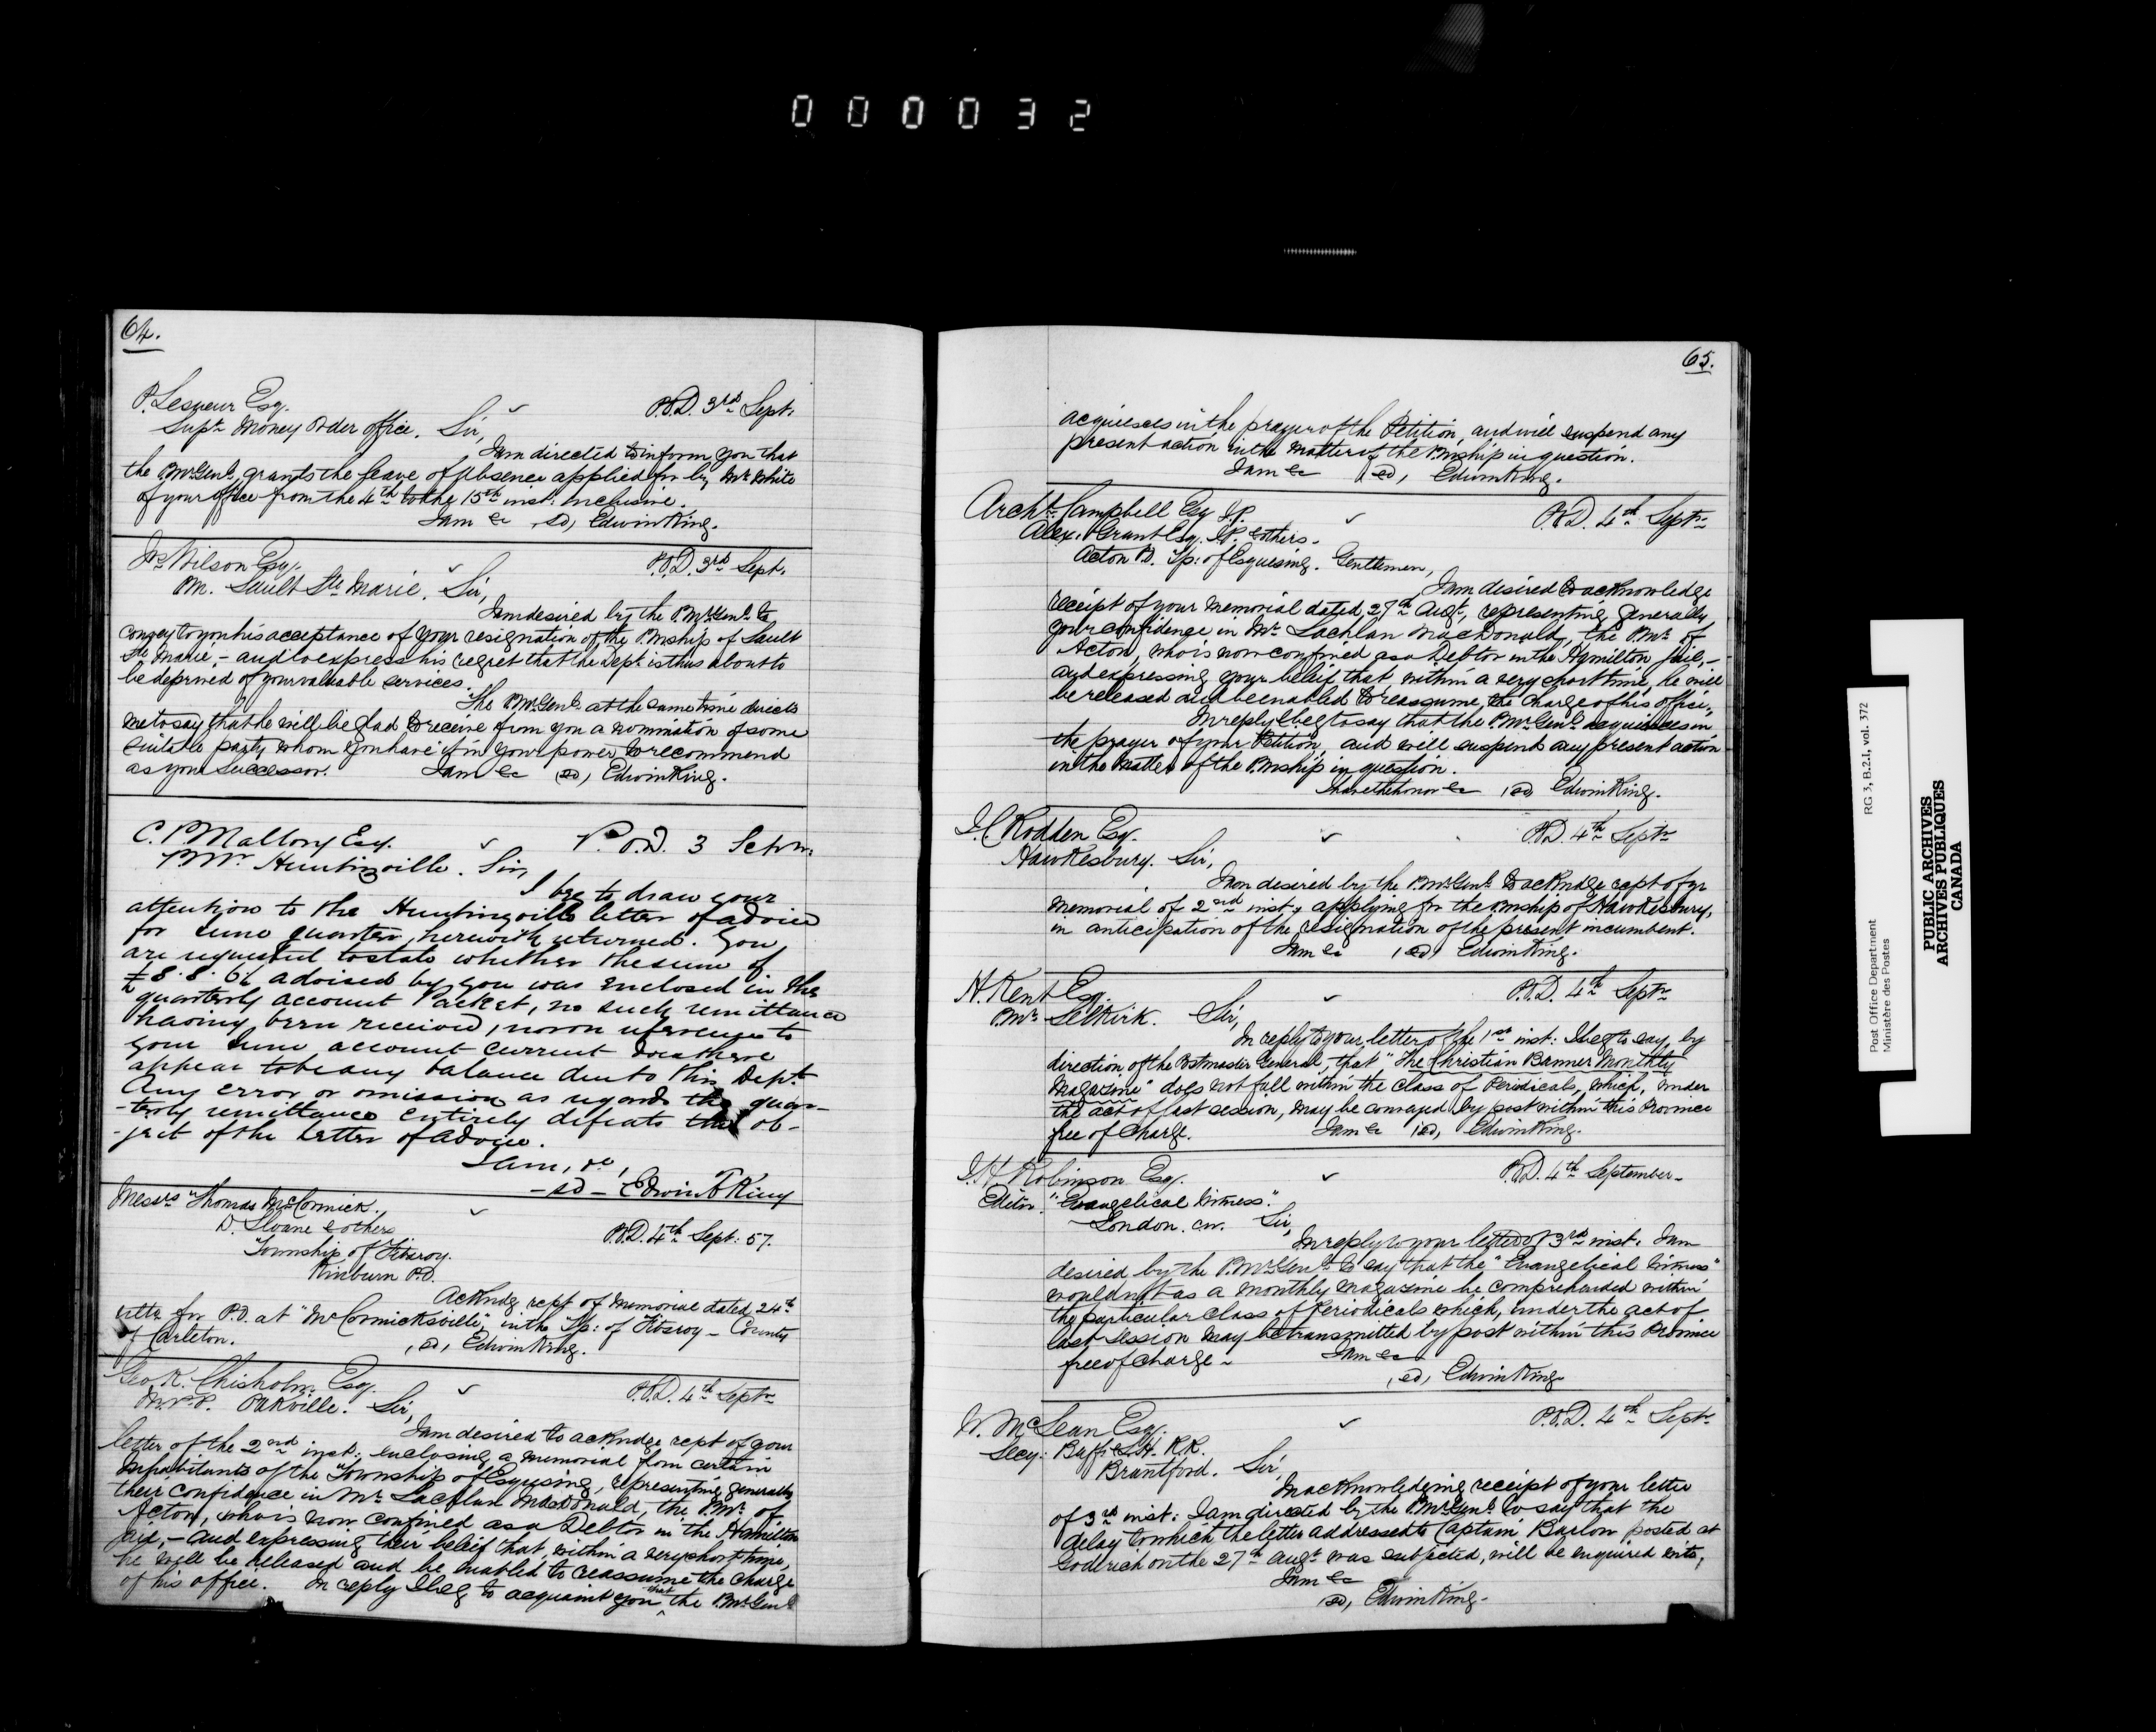 000032
64.
P. Lesueur Esq.
P.O.D. 3rd Sept.
Supt. Money Order Office. Sir,
I am directed to inform you that
the P.Mr.Genl. grants the leave of absence applied for by Mr. White
of your office from the 4th to the 15th inst. inclusive.
I am &c (sd) Edwin King.
Jos. Wilson Esq.
P.O.D. 3rd Sept.
PM. Sault Ste Marie. Sir,
I am desired by the P.Mr.Genl. to
convey to you his acceptance of your resignation of the PMship of Sault
Ste Marie, - and to express his regret that the Dept. is thus about to
be deprived of your valuable services.
The P.Mr.Genl. at the same time directs
me to say that he will be glad to receive from you a nomination of some
suitable party whom you have it in your power to recommend
as your successor. I am &c (sd) Edwin King.
C. P. Mallory Esq.
P.O.D. 3
PMr. Huntingville. Sir,
I beg to draw your
attention to the Huntingville letter of advice
for June quarter, herewith returned. You
are requested to state whether the sum of
£8. 8. 6½ advised by you was enclosed in the
quarterly account Packet, no such remittance
having been received, nor on reference to
your June account current does there
appear to be any balance due to this Dept.
Any error or omission as regards the quar-
-terly remittance entirely defeats the ob-
-ject of the letter of advice.
I am, &c,
- sd - Edwin F King
Messrs Thomas McCormick,
D. Sloane & others
P.O.D. 4th Sept: 57.
Township of Fitzroy.
Kinburn P.O.
Ackndg rcpt of Memorial dated 24th
ulto for P.O. at "McCormicksville", in the Tp: of Fitzroy - County
of Carleton. (sd) Edwin King.
Geo. K. Chisholm. Esq.
P.O.D. 4th Septr
M.P.P. Oakville. Sir,
I am desired to ackndge rcpt of your
letter of the 2nd inst. enclosing a memorial from certain
Inhabitants of the Township of Esquesing, representing generally
their confidence in Mr. Lachlan MacDonald, the PMr. of
Acton, who is now confined as a Debtor in the Hamilton
jail, - and expressing their belief that, within a very short time,
he will be released and be enabled to reassume the charge
of his office. In reply I beg to acquaint you that the P.Mr.Genl.
65.
acquiesces in the prayer of the Petition, and will suspend any
present action in the matter of the PMship in question.
I am &c (sd) Edwin King.
Archd. Campbell Esq. J.P.
P.O.D. 4th Septr
Alex. Grant Esq. J.P. & others.
Acton P.O. Tp: of Esquesing. Gentlemen,
I am desired to acknowledge
receipt of your Memorial dated 27th Augt, representing generally
your confidence in Mr. Lachlan MacDonald, the PMr. of
Acton, who is now confined as a Debtor in the Hamilton jail, -
and expressing your belief that, within a very short time, he will
be released and be enabled to reassume the charge of his office;
In reply I beg to say that the P.Mr.Genl. acquiesces in
the prayer of your Petition, and will suspend any present action
in the matter of the PMship in question.
I have the honor &c (sd) Edwin King.
Rodden Esq.
P.O.D. 4th Septr
Hawkesbury. Sir,
I am desired by the P.Mr.Genl. to ackndge rcpt of yr
Memorial of 2nd inst, applying for the PMship of Hawkesbury,
in anticipation of the resignation of the present incumbent.
I am &c (sd) Edwin King.
H. Kent Esq.
P.O.D. 4th Septr
PMr. Selkirk. Sir,
In reply to your letter of the 1st inst: I beg to say, by
direction of the Postmaster General, that "The Christian Banner Monthly
Magazine" does not fall within the class of Periodicals, which, under
the act of last session, may be conveyed by post within this Province
free of charge. I am &c (sd) Edwin King.
Robinson Esq.
P.O.D. 4th September
Editor "Evangelical Witness".
London. C.W. Sir,
In reply to your letter of 3rd inst. I am
desired by the P.Mr.Genl. to say that the "Evangelical Witness"
would not as a monthly magazine be comprehended within
the particular class of Periodicals which, under the act of
last session may be transmitted by post within this Province
free of charge - I am &c
(sd) Edwin King
W. McLean Esq.
P.O.D. 4th Septr
Secy: Buff: & L.H. R.R.
Brantford. Sir,
In acknowledging receipt of your letter
of 3rd inst: I am directed by the P.Mr.Genl. to say that the
delay to which the letter addressed to Captain Barlow posted at
Goderich on the 27th Augt was subjected, will be enquired into,
I am &c
(sd) Edwin King.
Post Office Department RG 3, B.2.I, vol. 372
Ministère des Postes
PUBLIC ARCHIVES
ARCHIVES PUBLIQUES
CANADA